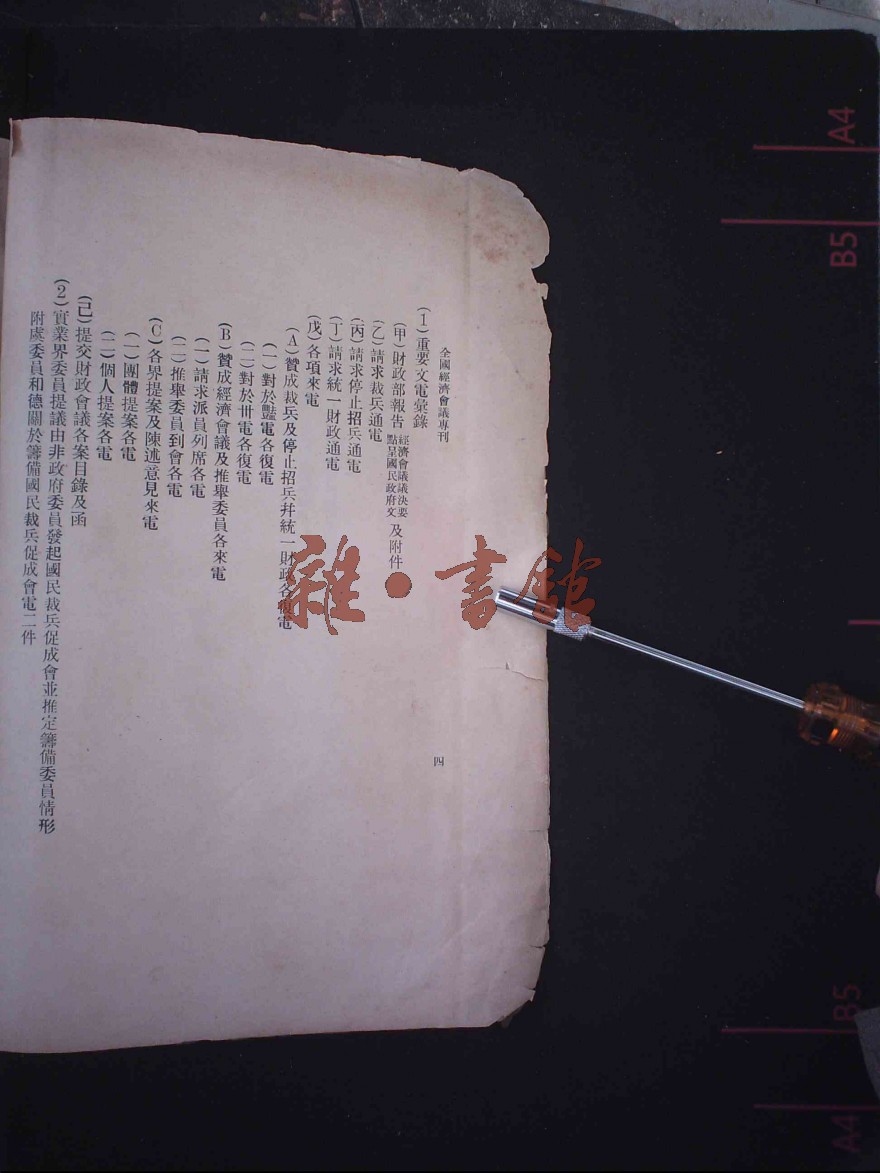 全國經濟會議專刊
四
(1)重要文電彙錄
(甲)財政部報告 經濟會議議決要點呈國民政府文 及附件
(乙)請求裁兵通電
(丙)請求停止招兵通電
(丁)請求統一財政通電
(戊)各項來電
(A)贊成裁兵及停止招兵幷統一財政各復電
(一)對於豔電各復電
(二)對於卅電各復電
(B)贊成經濟會議及推舉委員各來電
(一)請求派員列席各電
(二)推舉委員到會各電
(C)各界提案及陳述意見來電
(一)團體提案各電
(二)個人提案各電
(己)提交財政會議各案目錄及函
(2)實業界委員提議由非政府委員發起國民裁兵促成會並推定籌備委員情形
附處委員和德關於籌備國民裁兵促成會電二件
雜·書館
A4
B5
B5
A4